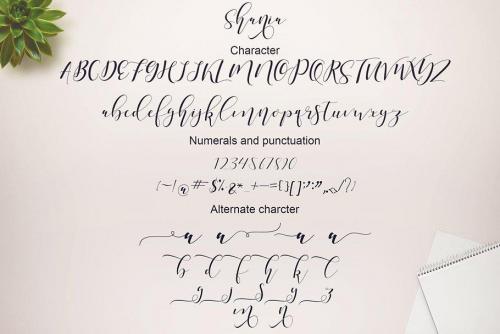 Shania
Character
ABCDEFGHIJKLMNOPQRSTUVWXYZ
abcdefghijklmnopqrstuvwxyz
Numerals and punctuation
1234567890
Alternate charcter
a a a a
b d f h k l
g j s y z
m n